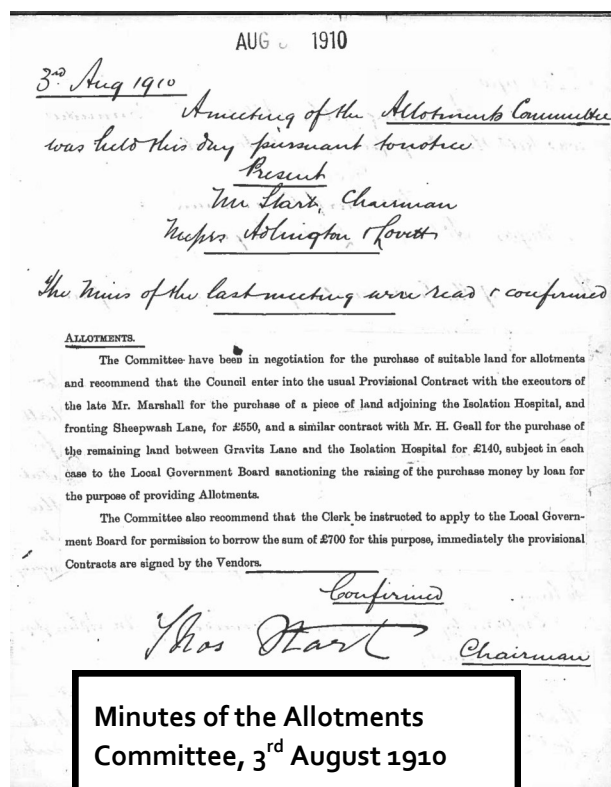 AUG 1910
3rd. Aug 1910
A meeting of the Allotments Committee
was held this day pursuant to notice
Present
Mr Start, Chairman
Messrs Adlington & Lovett
The Mins of the last meeting were read & confirmed
ALLOTMENTS.
The Committee have been in negotiation for the purchase of suitable land for allotments
and recommend that the Council enter into the usual Provisional Contract with the executors of
the late Mr. Marshall for the purchase of a piece of land adjoining the Isolation Hospital, and
fronting Sheepwash Lane, for £550, and a similar contract with Mr. H. Geall for the purchase of
the remaining land between Gravits Lane and the Isolation Hospital for £140, subject in each
case to the Local Government Board sanctioning the raising of the purchase money by loan for
the purpose of providing Allotments.
The Committee also recommend that the Clerk be instructed to apply to the Local Govern-
ment Board for permission to borrow the sum of £700 for this purpose, immediately the provisional
Contracts are signed by the Vendors.
Confirmed
Thos Start
Chairman
Minutes of the Allotments
Committee, 3rd August 1910